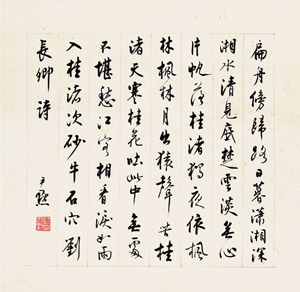 扁舟傍歸路日暮瀟湘深
湘水清見底楚雲淡無心
片帆落桂渚獨夜依楓
林楓林月出猿聲苦桂
渚天寒桂花吐此中無處
不堪愁江客相看淚如雨
入桂渚次砂牛石穴劉
長卿詩
尹默